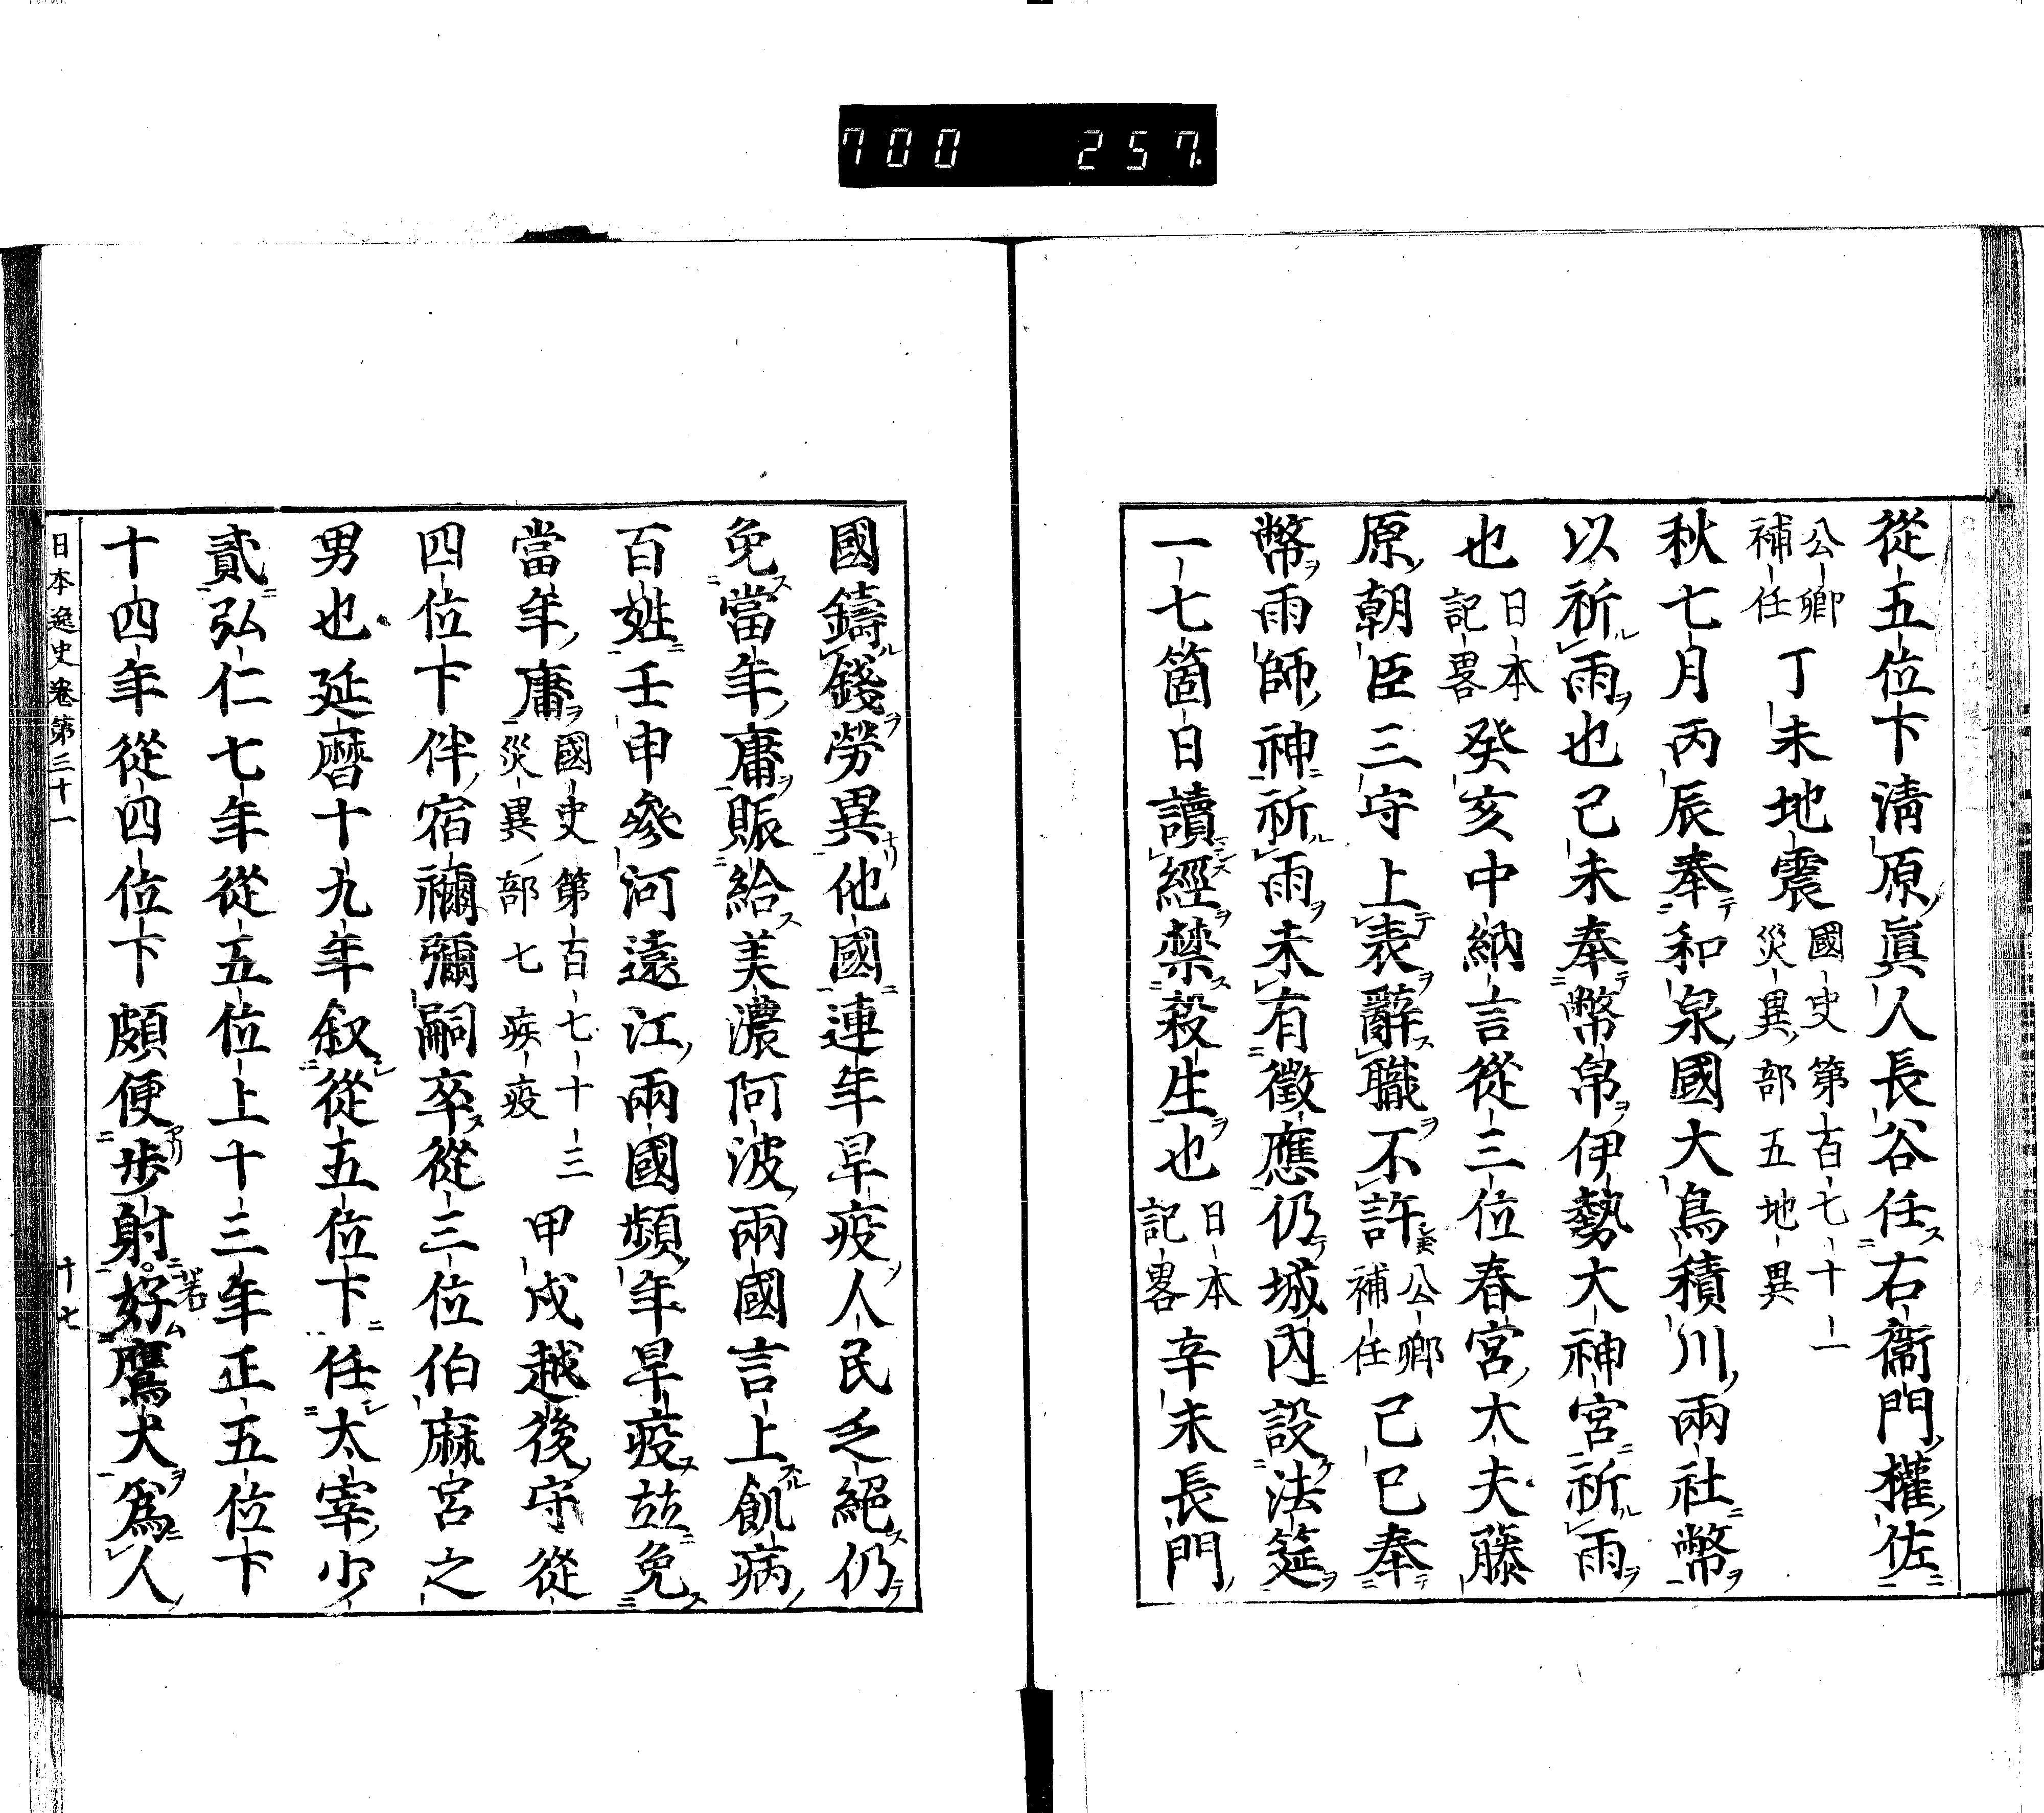 700 257
從五位下淸原眞人長谷任右衞門權佐
公卿補任丁未地震國史第百七十一災異部五地異
秋七月丙辰奉和泉國大鳥積川兩社幣
以祈雨也己未奉幣帛伊勢大神宮祈雨
也日本記畧癸亥中納言從三位春宮大夫藤
原朝臣三守上表辭職不許公卿補任己巳奉
幣雨師神祈雨未有徵應仍城內設法筵
一七箇日讀經禁殺生也日本記畧辛未長門
國鑄錢勞異他國連年旱疫人民乏絕仍
免當年庸賑給美濃阿波兩國言上飢病
百姓壬申參河遠江兩國頻年旱疫並免
當年庸國史第百七十三災異部七疾疫甲戌越後守從
四位下伴宿禰彌嗣卒從三位伯麻宮之
男也延曆十九年叙從五位下任太宰少
貳弘仁七年從五位上十三年正五位下
十四年從四位下頗便步射好鷹犬爲人
日本逸史卷第三十一 十七